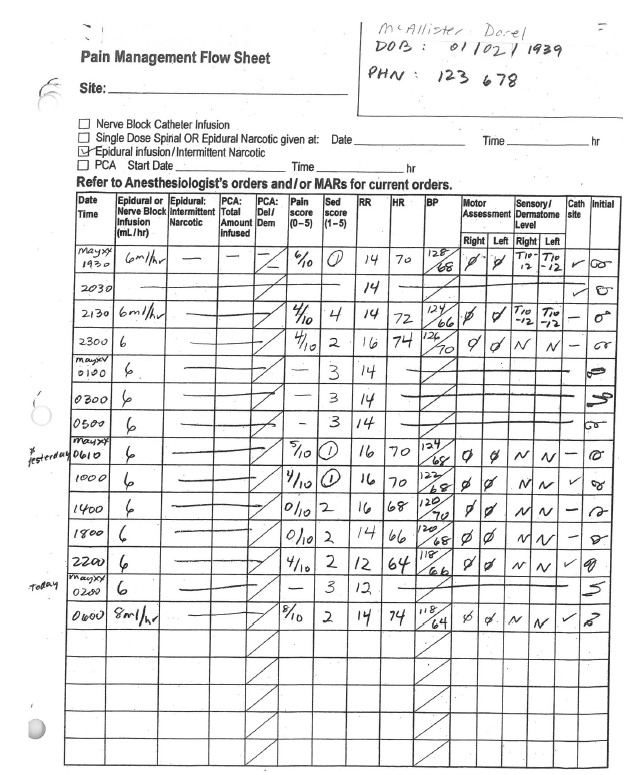 McAllister Dorel
DOB: 01/02/1939
PHN: 123 678
Pain Management Flow Sheet
Site:
Nerve Block Catheter Infusion
Single Dose Spinal OR Epidural Narcotic given at: Date Time hr
Epidural infusion/Intermittent Narcotic
PCA Start Date Time hr
Refer to Anesthesiologist's orders and/or MARs for current orders.
Date Time Epidural or Nerve Block Infusion (mL/hr) Epidural: Intermittent Narcotic PCA: Total Amount Infused PCA: Del/Dem Pain score (0–5) Sed score (1–5) RR HR BP Motor Assessment Right Left Sensory/Dermatome Level Right Left Cath site Initial
Mayxx 1930 6ml/hr — — — 6/10 1 14 70 128/68 Ø Ø T10-12 T10-12 ✓
2030 14 ✓
2130 6ml/hr 4/10 4 14 72 124/66 Ø Ø T10-12 T10-12 —
2300 6 4/10 2 16 74 126/70 Ø Ø N N —
Mayxx 0100 6 — 3 14
0300 6 — 3 14
0500 6 - 3 14
* yesterday Mayxx 0610 6 5/10 1 16 70 124/68 Ø Ø N N —
1000 6 4/10 1 16 70 122/68 Ø Ø N N ✓
1400 6 0/10 2 16 68 120/70 Ø Ø N N —
1800 6 0/10 2 14 66 120/68 Ø Ø N N -
2200 6 4/10 2 12 64 118/66 Ø Ø N N ✓
Today Mayxx 0200 6 — 3 12
0600 8ml/hr 8/10 2 14 74 118/64 Ø Ø N N ✓